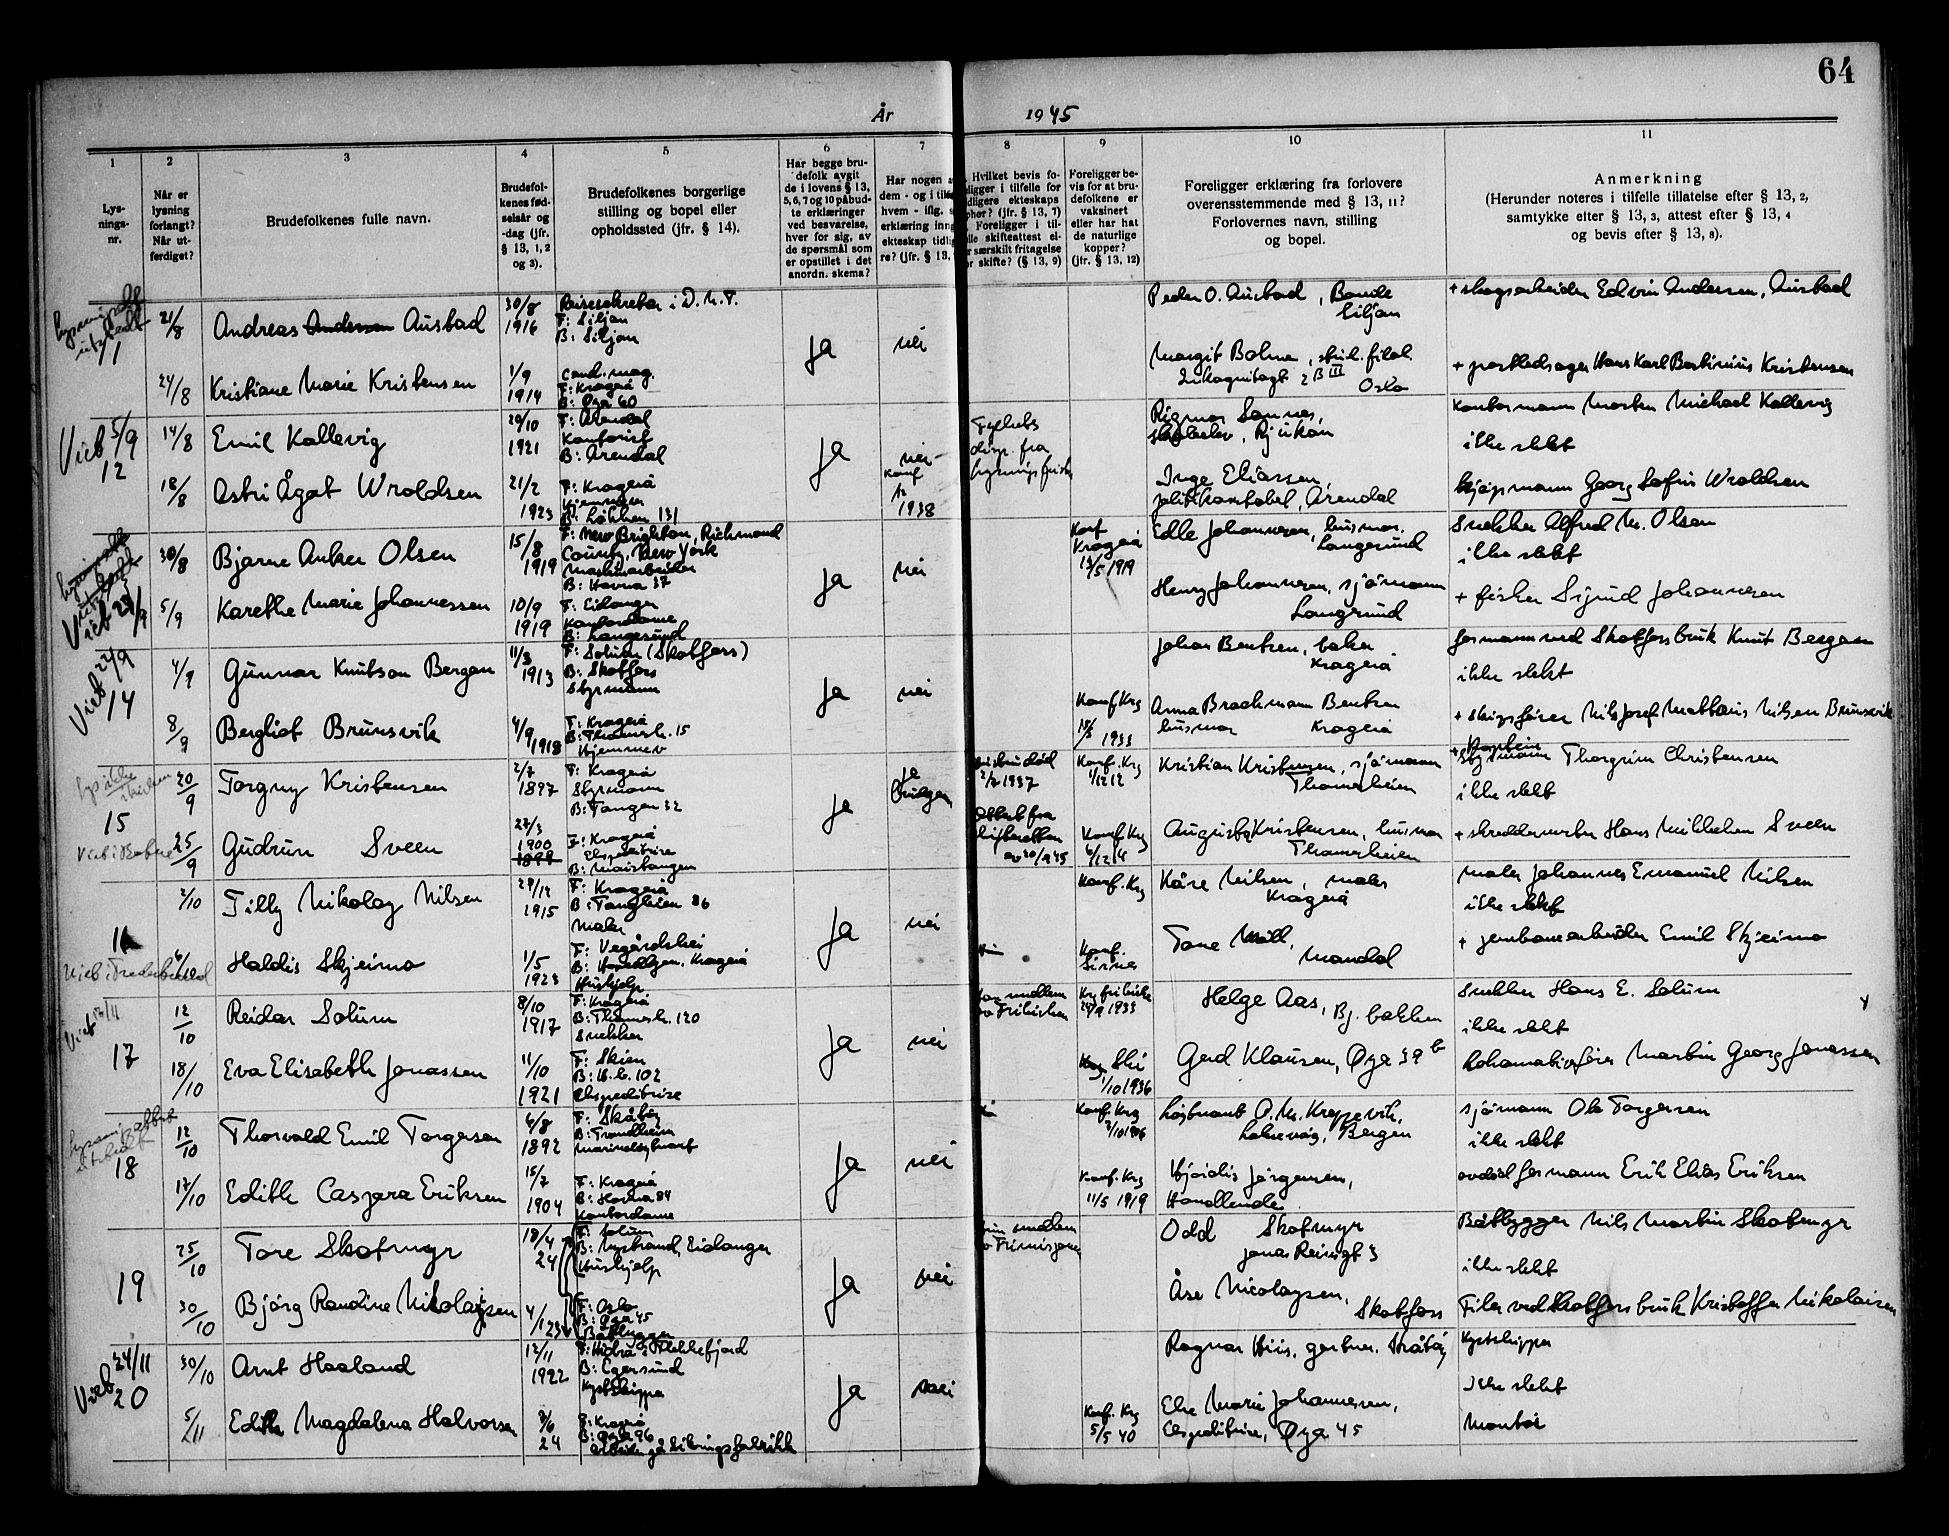 64
År 1945
1
Lys-
nings-
nr.
2
Når er
lysning
forlangt?
Når ut-
ferdiget?
3
Brudefolkenes fulle navn.
4
Brudefol-
kenes fød-
selsår og
-dag (jfr.
§ 13, 1, 2
og 3).
5
Brudefolkenes borgerlige
stilling og bopel eller
opholdssted (jfr. § 14).
6
Har begge bru-
defolk avgit
de i lovens § 13,
5, 6, 7 og 10 påbud-
te erklæringer
ved besvarelse,
hver for sig, av
de spørsmål som
er opstillet i det
anordn. skema?
7
Har nogen a
dem - og i tilfe
hvem - iflg. s
erklæring inng
ekteskap tidlig
re? (jfr. § 13,
8
Hvilket bevis fo-
ligger i tilfelle for
dligere ekteskaps
phør? (jfr. § 13, 7)
Foreligger i til-
lle skifteattest el-
r særskilt fritagelse
or skifte? (§ 13, 9)
9
Foreligger be-
vis for at bru-
defolkene er
vaksinert
eller har hat
de naturlige
kopper?
(jfr. § 13, 12)
10
Foreligger erklæring fra forlovere
overensstemmende med § 13, 11?
Forlovernes navn, stilling
og bopel.
11
Anmerkning
(Herunder noteres i tilfelle tillatelse efter § 13, 2,
samtykke efter § 13, 3, attest efter § 13, 4
og bevis efter § 13, 8).
11
21/8
Andreas Andersen Austad
30/8
1916
Reisesekretær i D.N.T.
F: Siljan
B: Siljan
ja
nei
Peder O. Austad, Bonde
Siljan
+ skogsarbeider Edvin Andersen, Austad
24/8
Kristiane Marie Kristensen
1/9
1914
cand. mag.
F: Kragerø
B: Øya 60
Margit Bolme, stud. filol.
Oslo
+ postledsager Hans Karl Bertinius Kristensen
Viet 5/9
12
14/8
Emil Kallevig
29/10
1921
F: Arendal
Kontorist
B: Arendal
ja
nei
Fylkets
disp. fra
lysningsfrist
Rigmor Sannes,
Rjukan
Kontormann Morten Michael Kallevig
ikke slekt
18/8
Astri Ågot Wroldsen
21/2
1923
F: Kragerø
Hjemmev.
B: Løkken 131
Konf
1938
Inge Eliassen,
politikonstabel, Arendal
kjøpmann Georg Sofus Wroldsen
Viet 29/9
30/8
Bjarne Anker Olsen
15/8
1919
F: New Brighton, Richmond
County, New York
Maskinarbeider
B: Havna 37
ja
nei
Konf
Kragerø
13/5 1919
Edle Johannesen, husmor.
Langesund
Snekker Alfred M. Olsen
ikke slekt
5/9
Karethe Marie Johannessen
10/9
1919
F: Eidanger
Kontordame
B: Langesund
Henry Johannesen, sjømann
Langesund
+ fisker Sigurd Johannesen
Viet 22/9
14
4/9
Gunnar Knutson Bergan
11/3
1913
F: Solum (Skotfoss)
B: Skotfoss
Styrmann
ja
nei
Johan Bentzen, baker
Kragerø
formann ved Skotfoss bruk Knut Bergan
ikke slekt
8/9
Bergliot Brunsvik
4/9
1918
F: Kragerø
B: Thomesh. 15
Hjemmev
Konf Krg
1933
Anna Brackmann Bentzen
husmor Kragerø
+ skipsfører Nils Josef Mathæus Nilsen Brunsvik
15
20/9
Torguy Kristensen
2/7
1897
F: Kragerø
Styrmann
B: Tangen 32
ja
ja
Konf. Krg
1/12 12
Kristian Kristensen, sjømann
Thomesheien
+ styrmann Kaptein Thorgrim Christensen
ikke slekt
25/9
Gudrun Sveen
27/3
1900
1899
F: Kragerø
Ekspeditrise
Attest fra
skifteretten
av 20/9 45
Konf Krg
6/12 14
Augusta Kristensen, husmor
Thomesheien
+ skreddermester Hans Mikkelsen Sveen
16
2/10
Tilly Nikolay Nilsen
29/12
1915
F: Kragerø
B: Tangheien 86
Maler
ja
nei
Konf. Krg
Kåre Nilsen, maler
Kragerø
maler Johannes Emanuel Nilsen
ikke slekt
6/10
Haldis Skjeimo
1/5
1923
F: Vegårdshei
Kragerø
Hushjelp
Konf.
Tore Moll,
Mandal
+ jernbanearbeider Emil Skjeimo
Viet 17/11
17
12/10
Reidar Solum
8/10
1917
F: Kragerø
B: Thomesh. 120
Snekker
ja
nei
medlem
av Frikirken
Krg frikirke
24/9 1933
Helge Aas, Bj. bakken
Snekker Hans E. Solum
ikke slekt
18/10
Eva Elisabeth Jonassen
11/10
1921
F: Skien
B: 102
Ekspeditrise
Ski
1/10 1936
Gerd Klausen, Øya 39 b
Lokomotivfører Martin Georg Jonassen
18
12/10
Thorvald Emil Torgersen
6/8
1892
F: Skåtøy
B: Trondheim
Marineløytnant
ja
nei
Konf. Krg
7/10 1906
løytnant O.M. Kreppevik,
Laksevåg, Bergen
sjømann Ole Torgersen
ikke slekt
17/10
Edith Caspara Eriksen
15/7
1904
F: Kragerø
B: Havna 84
Kontordame
Konf. Krg
11/5 1919
Hjørdis Jørgensen,
Handlende
avdød formann Erik Elias Eriksen
19
25/10
Tore Skotmyr
18/4
24
F: Solum
B: Nystrand, Eidanger
Hushjelp
ja
nei
medlem
Odd Skotmyr
Jonas Reinsgt 3
Båtbygger Nils Martin Skotmyr
ikke slekt
30/10
Bjørg Randine Nikolaysen
4/1 23
F: Oslo
B: Øya 45
Båtbygger
Åse Nicolaysen,
Skotfoss
Filer ved Skotfoss bruk Kristoffer Nikolaisen
Viet 24/11
20
30/10
Arnt Haaland
12/11
1922
F: Hidra i Flekkefjord
B: Egersund
Kystskipper
ja
nei
Ragnar Hiis, gartner. Skåtøy
Kystskipper
Ikke slekt
5/11
Edith Magdalena Halvorsen
3/6
24
F: Kragerø
B: Øya 96
Konf. Krg
5/5 40
Else Marie Johannesen,
Ekspeditrise, Øya 45
Montør